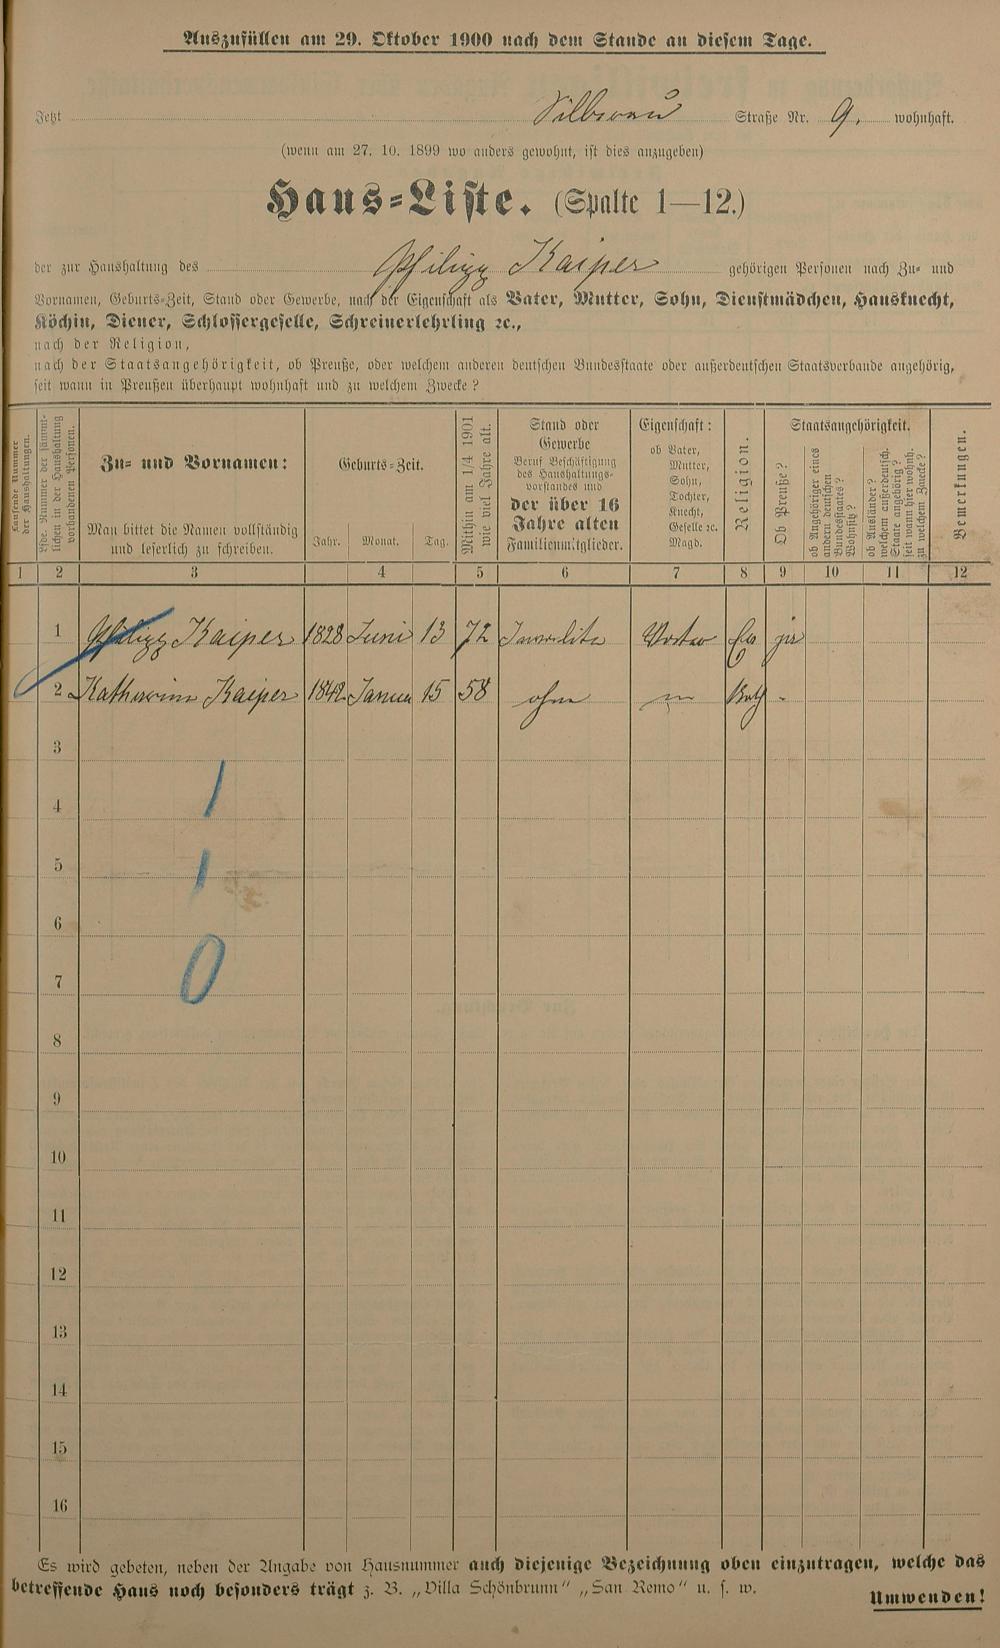 Auszufüllen am 29. Oktober 1900 nach dem Stande an diesem Tage.
Jetzt Silberau Straße Nr. 9. wohnhaft.
(wenn am 27. 10. 1899 wo anders gewohnt, ist dies anzugeben)
Haus-Liste. (Spalte 1—12.)
der zur Haushaltung des Philipp Kaiper gehörigen Personen nach Zu- und
Vornamen, Geburts-Zeit, Stand oder Gewerbe, nach der Eigenschaft als Vater, Mutter, Sohn, Dienstmädchen, Hausknecht,
Köchin, Diener, Schlossergeselle, Schreinerlehrling ꝛc.,
nach der Religion,
nach der Staatsangehörigkeit, ob Preuße, oder welchem anderen deutschen Bundesstaate oder außerdeutschen Staatsverbande angehörig,
seit wann in Preußen überhaupt wohnhaft und zu welchem Zwecke?
Laufende Nummer
der Haushaltungen.
Lfde. Nummer der sämmt-
lichen in der Haushaltung
vorhandenen Personen.
Zu- und Vornamen:
Man bittet die Namen vollständig
und leserlich zu schreiben.
Geburts-Zeit.
Jahr. Monat. Tag.
Mithin am 1/4 1901
wie viel Jahre alt.
Stand oder
Gewerbe
Beruf Beschäftigung
des Haushaltungs-
vorstandes und
der über 16
Jahre alten
Familienmitglieder.
Eigenschaft:
ob Vater,
Mutter,
Sohn,
Tochter,
Knecht,
Geselle ꝛc.
Magd.
Religion.
Staatsangehörigkeit.
Ob Preuße?
ob Angehöriger eines
andern deutschen
Bundesstaates?
Wohnsitz?
ob Ausländer?
welchem außerdeutsch.
Staate angehörig?
seit wann hier wohnh.
zu welchem Zwecke?
Bemerkungen.
1 2 3 4 5 6 7 8 9 10 11 12
1 Philipp Kaiper 1828 Juni 13 72 Invalide Vater Ev ja
2 Katharina Kaiper 1842 Januar 15 58 ohne Kath -
3
4
5
6
7
8
9
10
11
12
13
14
15
16
1
1
0
Es wird gebeten, neben der Angabe von Hausnummer auch diejenige Bezeichnung oben einzutragen, welche das
betreffende Haus noch besonders trägt z. B. „Villa Schönbrunn" „San Remo" u. s. w.
Umwenden!